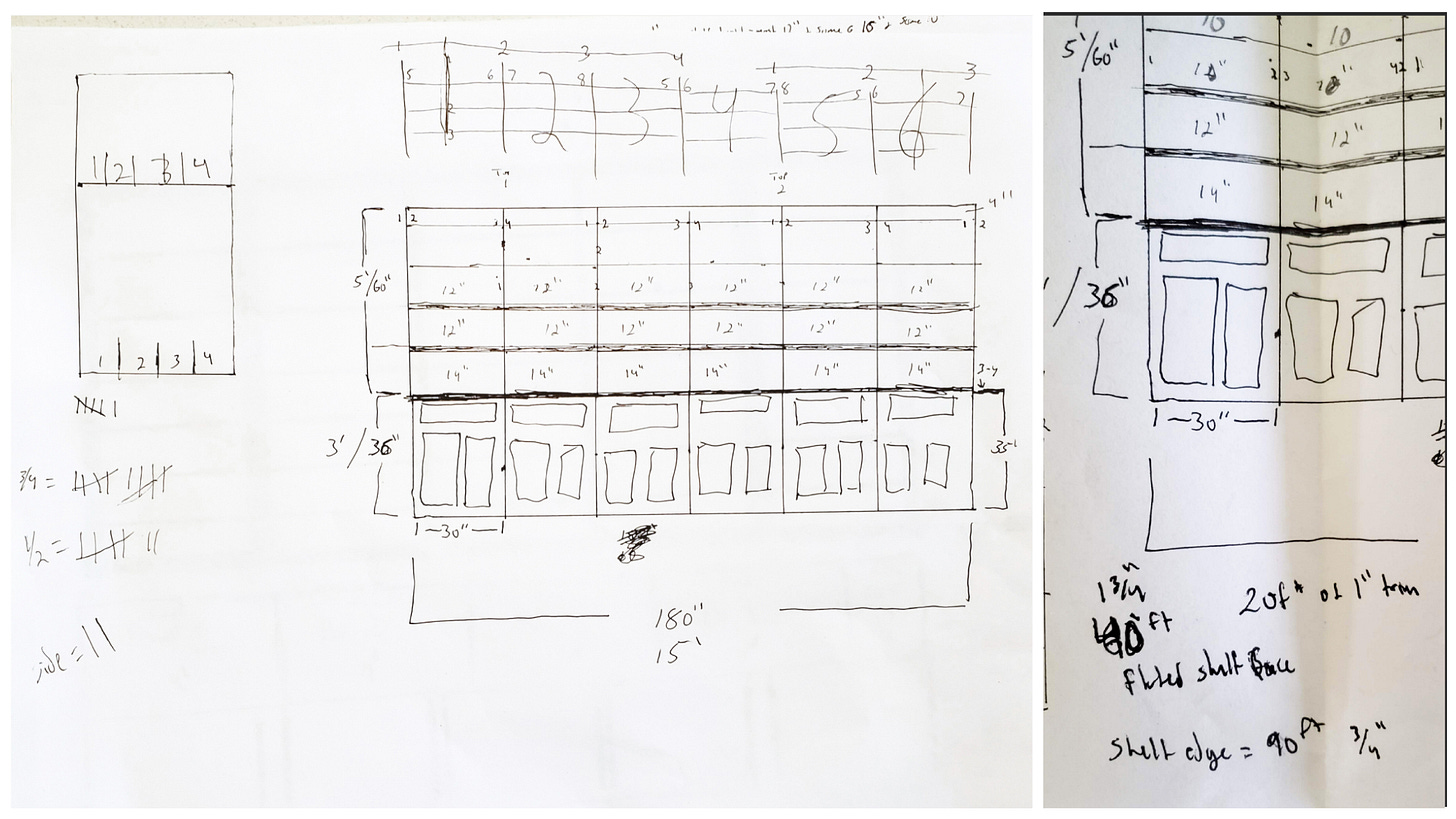 1 2 3 4
5 6 7 8 5 6 7 8 5 6 7
2 3 4 5 6
1 2 3
2
3
1 2 3 4
1 2 3 4
Top
1
Top
2
4"
1 2 4 1 2 3 4 1 2 3 4 1 2
2
5'/60"
12" 12" 12" 12" 12" 12"
12" 12" 12" 12" 12" 12"
14" 14" 14" 14" 14" 14"
3'/36"
1—30"—1
180"
15'
3/4 =
1/2 =
side = 11
10 10
5'/60"
12" 12"
14" 14"
/36"
1—30"—1
1 3/4"
40 ft
fluted shelf face
20ft of 1" trim
shelf edge = 90 ft 3/4"